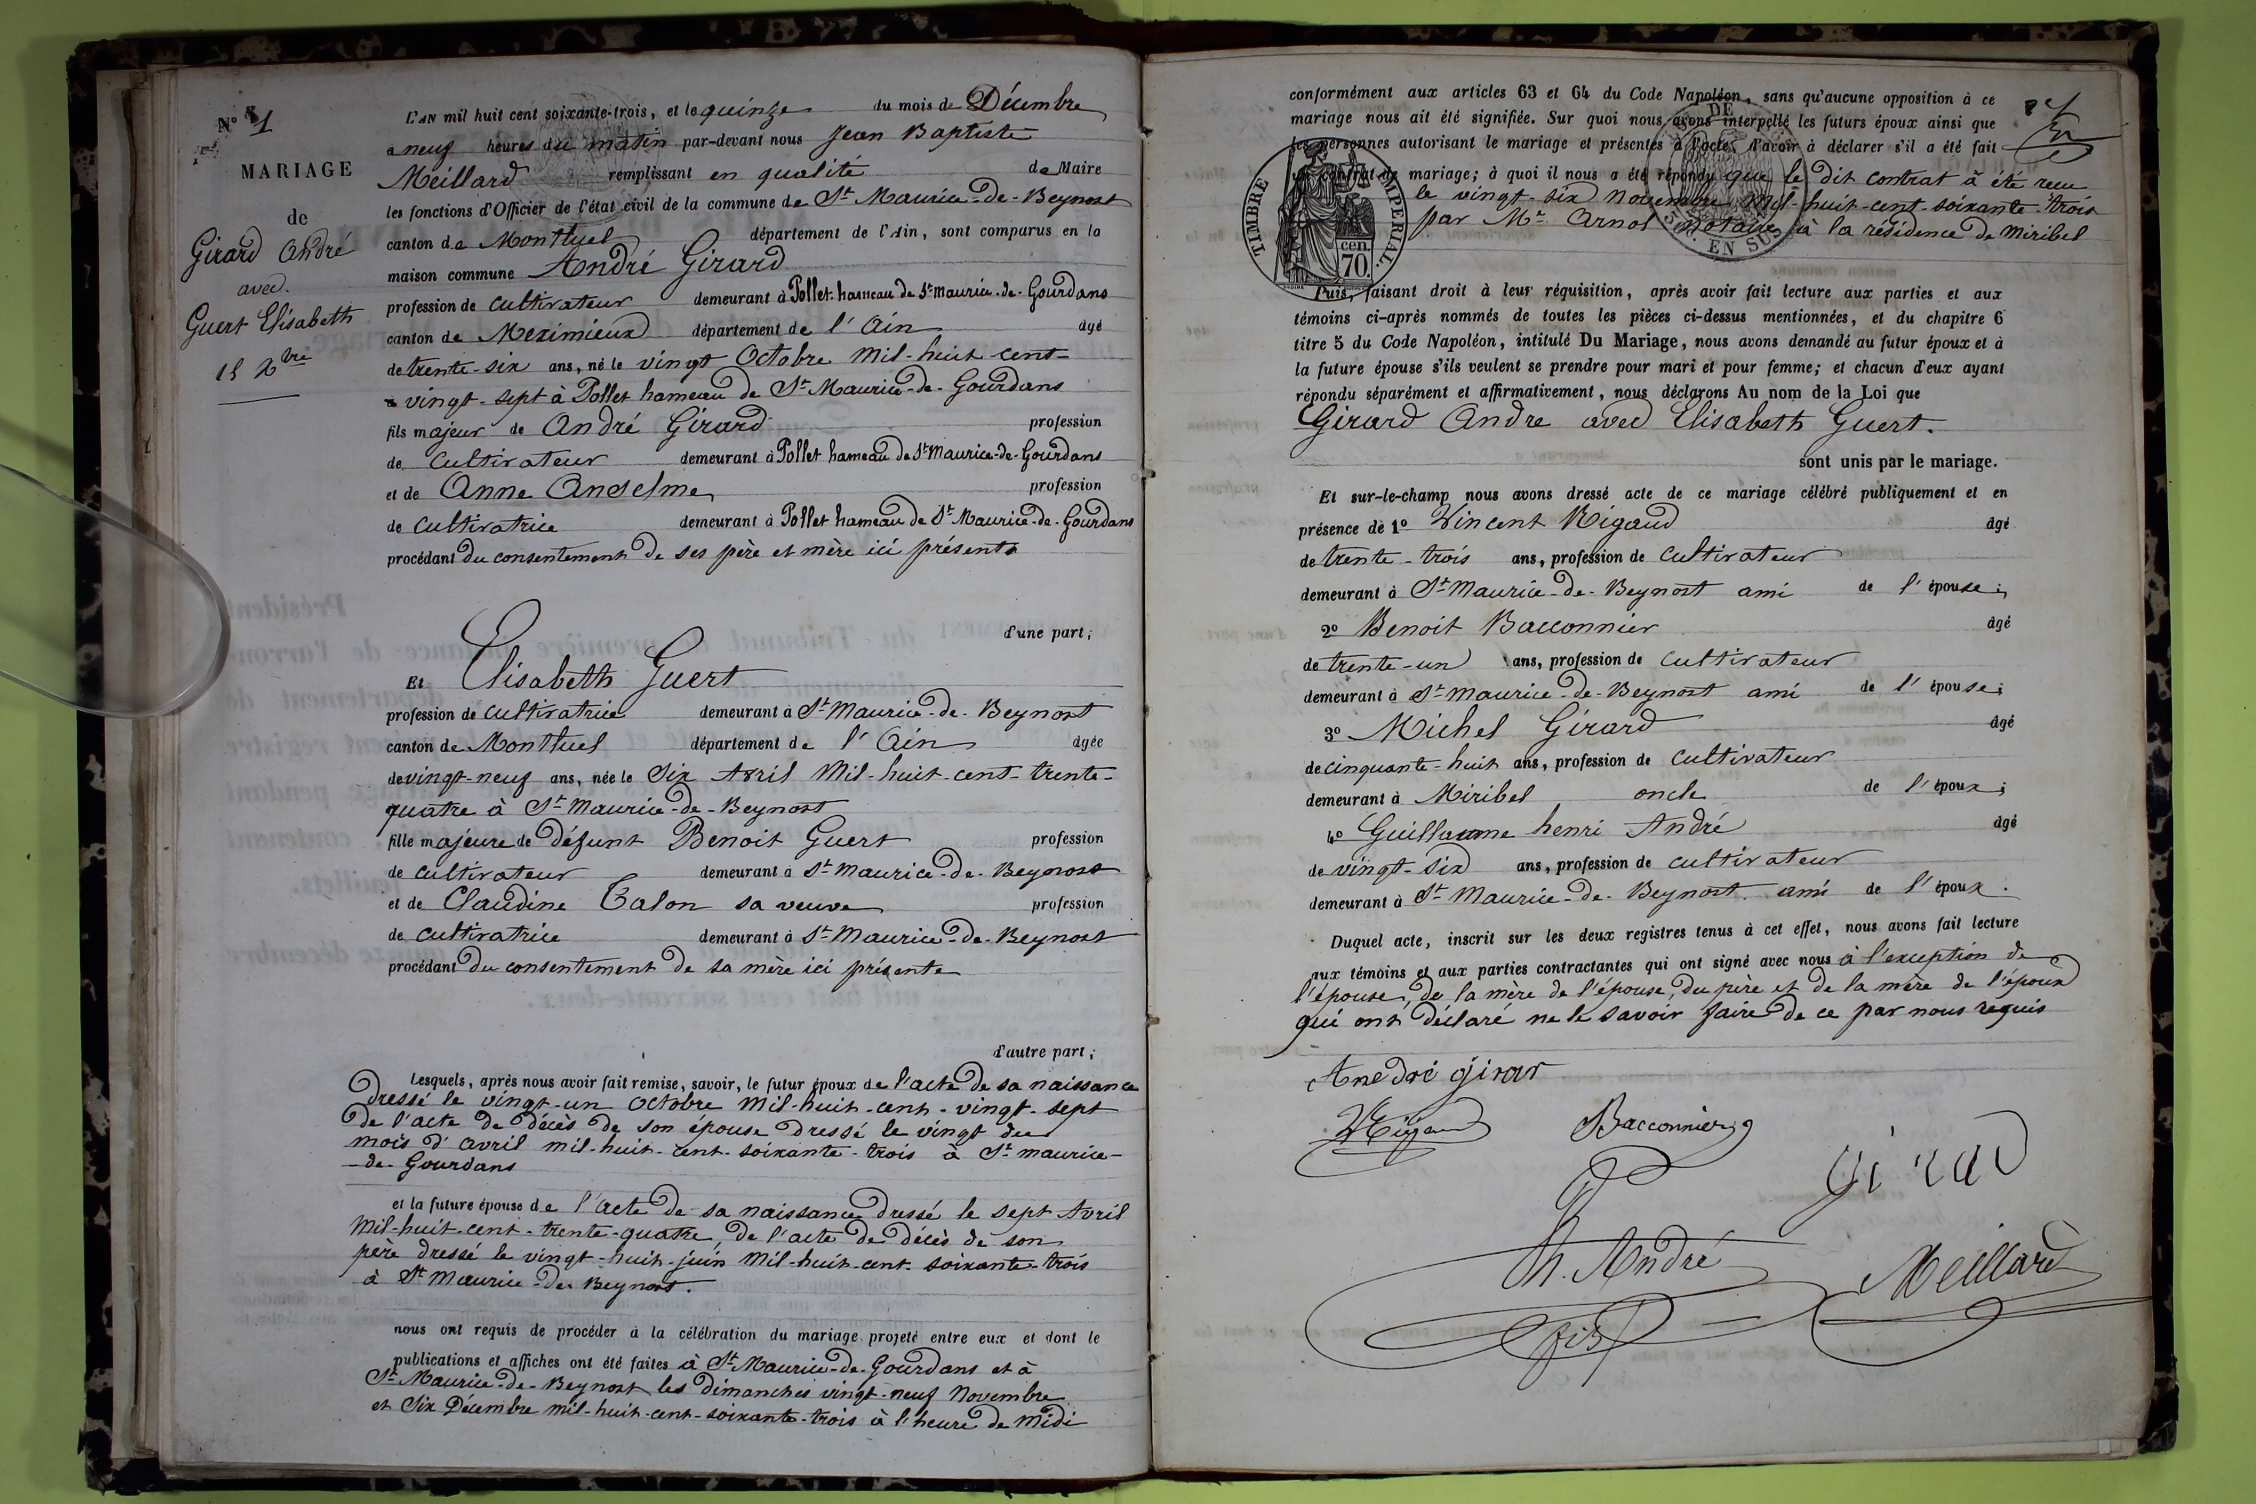 N° 1
MARIAGE
de
Girard André
avec
Guert Elisabeth
15 Xbre
L'AN mil huit cent soixante-trois, et le quinze du mois de Décembre
à neuf heures du matin par-devant nous Jean Baptiste
Meillard remplissant en qualité de Maire
les fonctions d'Officier de l'état civil de la commune de St Maurice-de-Beynost
canton de Montluel département de l'Ain, sont comparus en la
maison commune André Girard
profession de cultivateur demeurant à Pollet hameau de St maurice-de-Gourdans
canton de Meximieux département de l'Ain âgé
de trente-six ans, né le vingt Octobre Mil-huit-cent-
vingt-sept à Pollet hameau de St Maurice-de-Gourdans
fils majeur de André Girard profession
de cultivateur demeurant à Pollet hameau de St Maurice-de-Gourdans
et de Anne Anselme profession
de cultivatrice demeurant à Pollet hameau de St Maurice-de-Gourdans
procédant du consentement de ses père et mère ici présents
d'une part;
Et Elisabeth Guert
profession de cultivatrice demeurant à St Maurice-de-Beynost
canton de Montluel département de l'Ain âgée
de vingt-neuf ans, née le Six Avril Mil-huit-cent-trente-
quatre à St Maurice-de-Beynost
fille majeure de défunt Benoit Guert profession
de cultivateur demeurant à St Maurice-de-Beynost
et de Claudine Talon sa veuve profession
de cultivatrice demeurant à St Maurice-de-Beynost
procédant du consentement de sa mère ici présente
d'autre part;
Lesquels, après nous avoir fait remise, savoir, le futur époux de l'acte de sa naissance
dressé le vingt-un Octobre Mil-huit-cent-vingt-sept
de l'acte de décès de son épouse dressé le vingt du
mois d'avril mil-huit-cent-soixante-trois à St maurice-
-de-Gourdans
et la future épouse de l'acte de sa naissance dressé le sept Avril
Mil-huit-cent-trente-quatre, de l'acte de décès de son
père dressé le vingt-huit-juin Mil-huit-cent soixante-trois
à St Maurice-de-Beynost.
nous ont requis de procéder à la célébration du mariage projeté entre eux et dont le
publications et affiches ont été faites à St Maurice-de-Gourdans et à
St Maurice-de-Beynost les dimanches vingt-neuf Novembre
et Six Décembre mil-huit-cent-soixante-trois à l'heure de Midi
conformément aux articles 63 et 64 du Code Napoléon, sans qu'aucune opposition à ce
mariage nous ait été signifiée. Sur quoi nous avons interpellé les futurs époux ainsi que
les personnes autorisant le mariage et présentes à l'acte, d'avoir à déclarer s'il a été fait
un contrat de mariage; à quoi il nous a été répondu que le dit contrat à été recu
le vingt-six Novembre Mil-huit-cent-soixante-trois
par Mr Arnol Notaire à la résidence de Miribel
TIMBRE IMPERIAL.
cen.
70.
DE
EN SUS
Puis, faisant droit à leur réquisition, après avoir fait lecture aux parties et aux
témoins ci-après nommés de toutes les pièces ci-dessus mentionnées, et du chapitre 6
titre 5 du Code Napoléon, intitulé Du Mariage, nous avons demandé au futur époux et à
la future épouse s'ils veulent se prendre pour mari et pour femme; et chacun d'eux ayant
répondu séparément et affirmativement, nous déclarons Au nom de la Loi que
Girard Andre avec Elisabeth Guert.
sont unis par le mariage.
Et sur-le-champ nous avons dressé acte de ce mariage célébré publiquement et en
présence de 1° Vincent Rigaud âgé
de trente-trois ans, profession de cultivateur
demeurant à St Maurice-de-Beynost ami de l'épouse;
2° Benoit Bacconnier âgé
de trente-un ans, profession de cultivateur
demeurant à St maurice-de-Beynost ami de l'épouse;
3° Michel Girard âgé
de cinquante-huit ans, profession de cultivateur
demeurant à Miribel oncle de l'époux;
4° Guillaume henri André âgé
de vingt-six ans, profession de cultivateur
demeurant à St Maurice-de-Beynost ami de l'époux.
Duquel acte, inscrit sur les deux registres tenus à cet effet, nous avons fait lecture
aux témoins et aux parties contractantes qui ont signé avec nous à l'exception de
l'épouse, de la mère de l'épouse, du père et de la mère de l'époux
qui ont déclaré ne le savoir faire de ce par nous requis
Anedré girar
VRigaud Bacconnier
girad
h. André
fils
Meillard